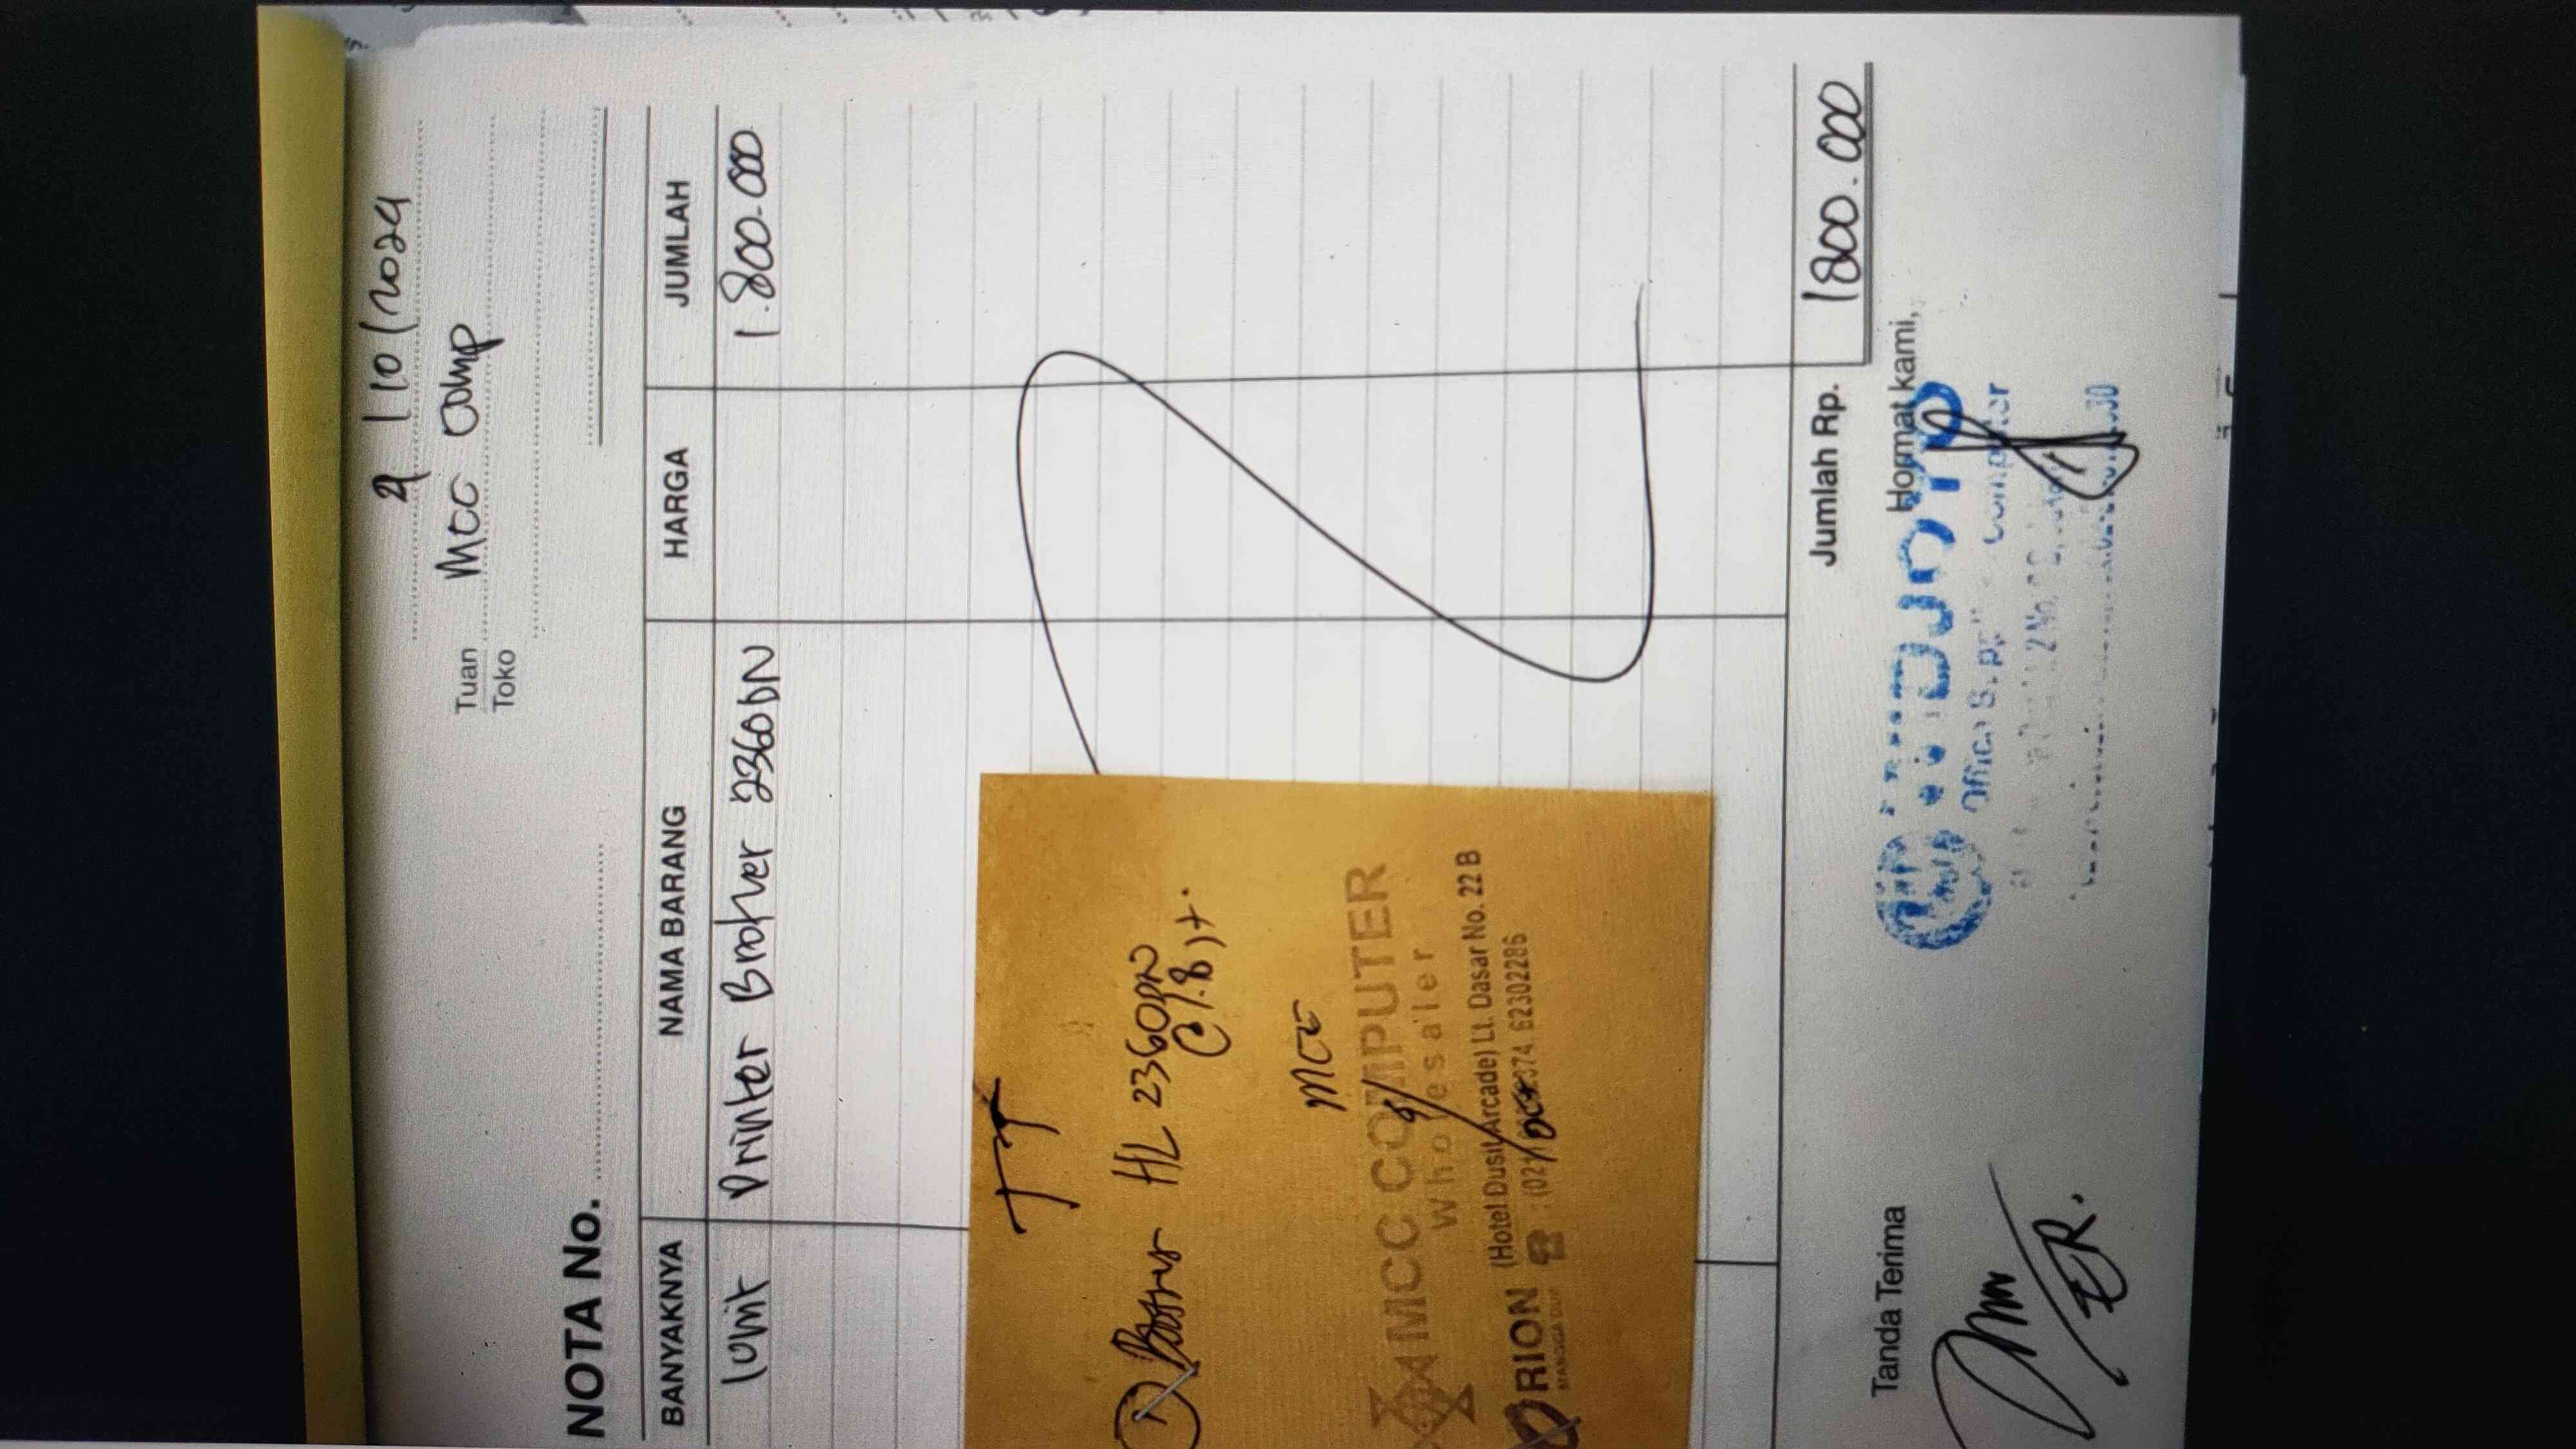 9/10/2024
Tuan MCC Comp
Toko
NOTA No.
BANYAKNYA NAMA BARANG HARGA JUMLAH
1 Unit Printer Brother 2360DN 1.800.000
TT
1 HL 2360DN
@ 1.8 jt.
MCC
MCC COMPUTER
Wholesaler
ORION (Hotel Dusit Arcade) Lt. Dasar No. 22 B
MANGGA DUA (021) 62302286
Jumlah Rp. 1800.000
Tanda Terima Hormat kami,
Computer
FER.